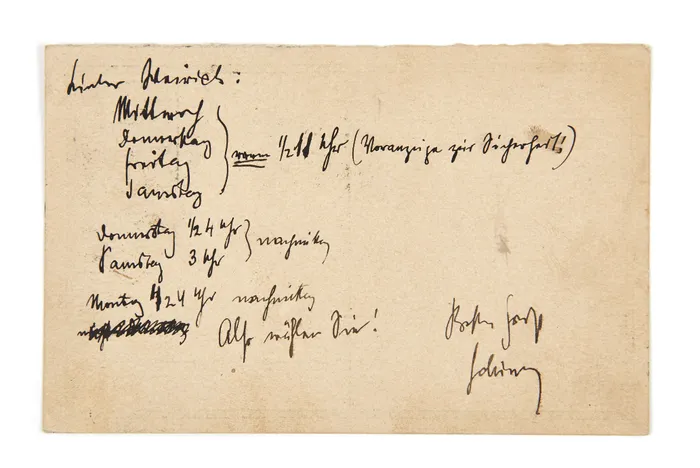 Lieber Weirich:
Mittwoch
Donnerstag
Freitag
Samstag
vorm 1/2 11 Uhr (Voranzeige zur Sicherheit!)
Donnerstag 1/2 4 Uhr
Samstag 3 Uhr
nachmittag
Montag 1/2 4 Uhr nachmittag
Also wählen Sie!